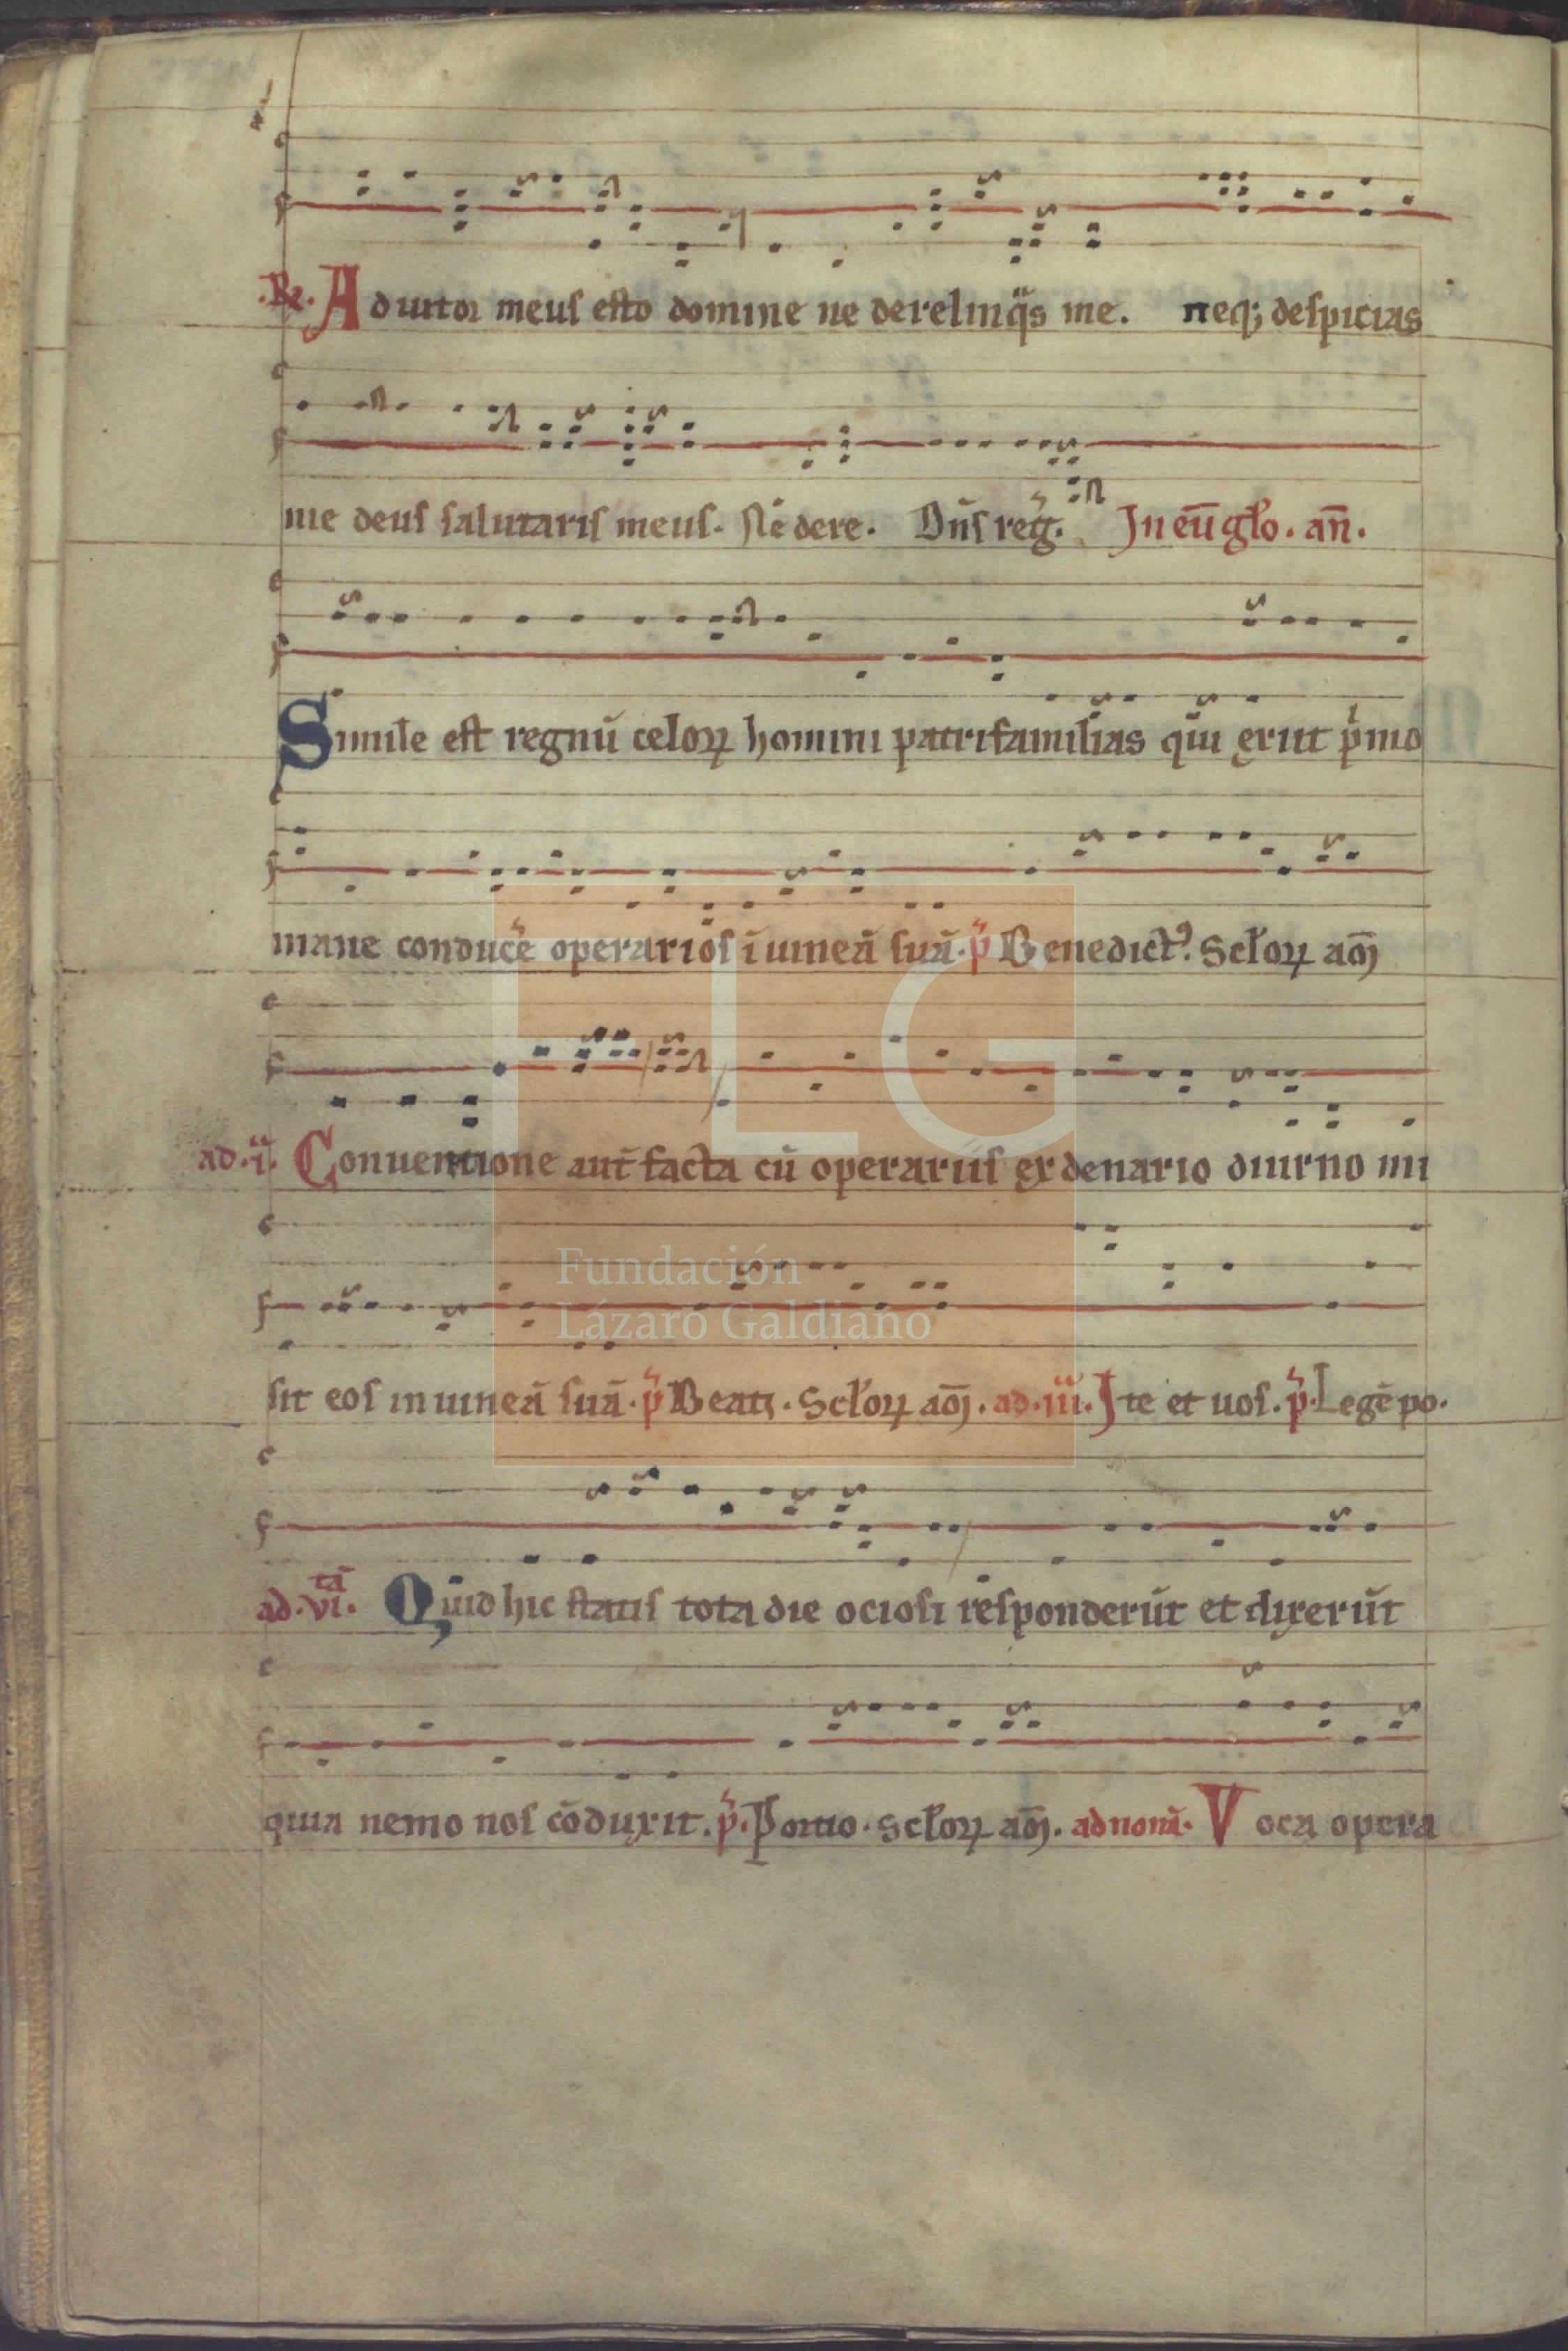 .R. Adiutor meus esto domine ne derelinq̈s me. neq; despicias
me deus salutaris meus. Ne dere. Dn̄s reg̃. In eūg̃lo. an̄.
Simile est regnū celoꝝ homini patrifamilias qui exiit p̍mo
mane conduce᷑ operarios ī uineā suā. p᷑ Benedict᷒. Scl̵oꝝ am̄
ad.i. Conuentione aut̄ facta cū operariis ex denario diurno mi
sit eos in uineā suā. p᷑ Beati. Scl̵oꝝ am̄. ad.iii. Ite et uos. p᷑. Legē po.
ad.vi.ta᷄ Quid hic statis tota die ociosi responderūt et dixerūt
quia nemo nos cōduxit. p᷑. Portio. scl̵oꝝ am̄. ad nonā. Voca opera
Fundación
Lázaro Galdiano
FLG